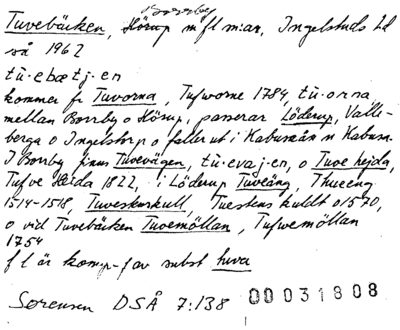 Borrby
Tuvebäcken, Hörup m fl m:ar, Ingelstads hd
så 1962
tù·ebætj·en
kommer fr Tuvorna, Tufworne 1784, tù·orna
mellan Borrby o Hörup, passerar Löderup, Valle-
berga o Ingelstorp o faller ut i Kabusaån n Kabusa.
I Borrby finns Tuvevägen, tù·evaj·en, o Tuve hejda,
Tufve Heida 1822, i Löderup Tuveäng, Thueeng
1514-1518, Tuveskurkull, Tuestens kullt o1570,
o vid Tuvebäcken Tuvemöllan, Tufwemöllan
1754
f l är komp-f av subst tuva
Sørensen DSÅ 7:138 00031808